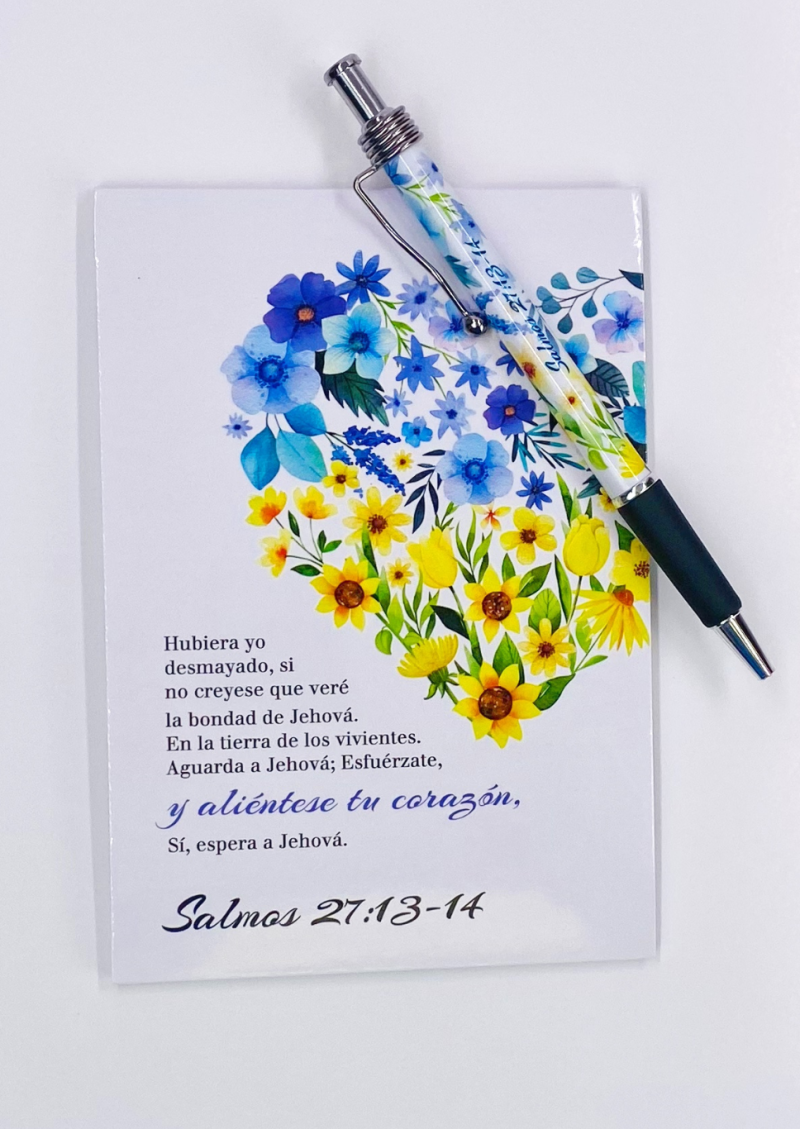 Salmos 27:13-14
Hubiera yo
desmayado, si
no creyese que veré
la bondad de Jehová.
En la tierra de los vivientes.
Aguarda a Jehová; Esfuérzate,
y aliéntese tu corazón,
Sí, espera a Jehová.
Salmos 27:13-14